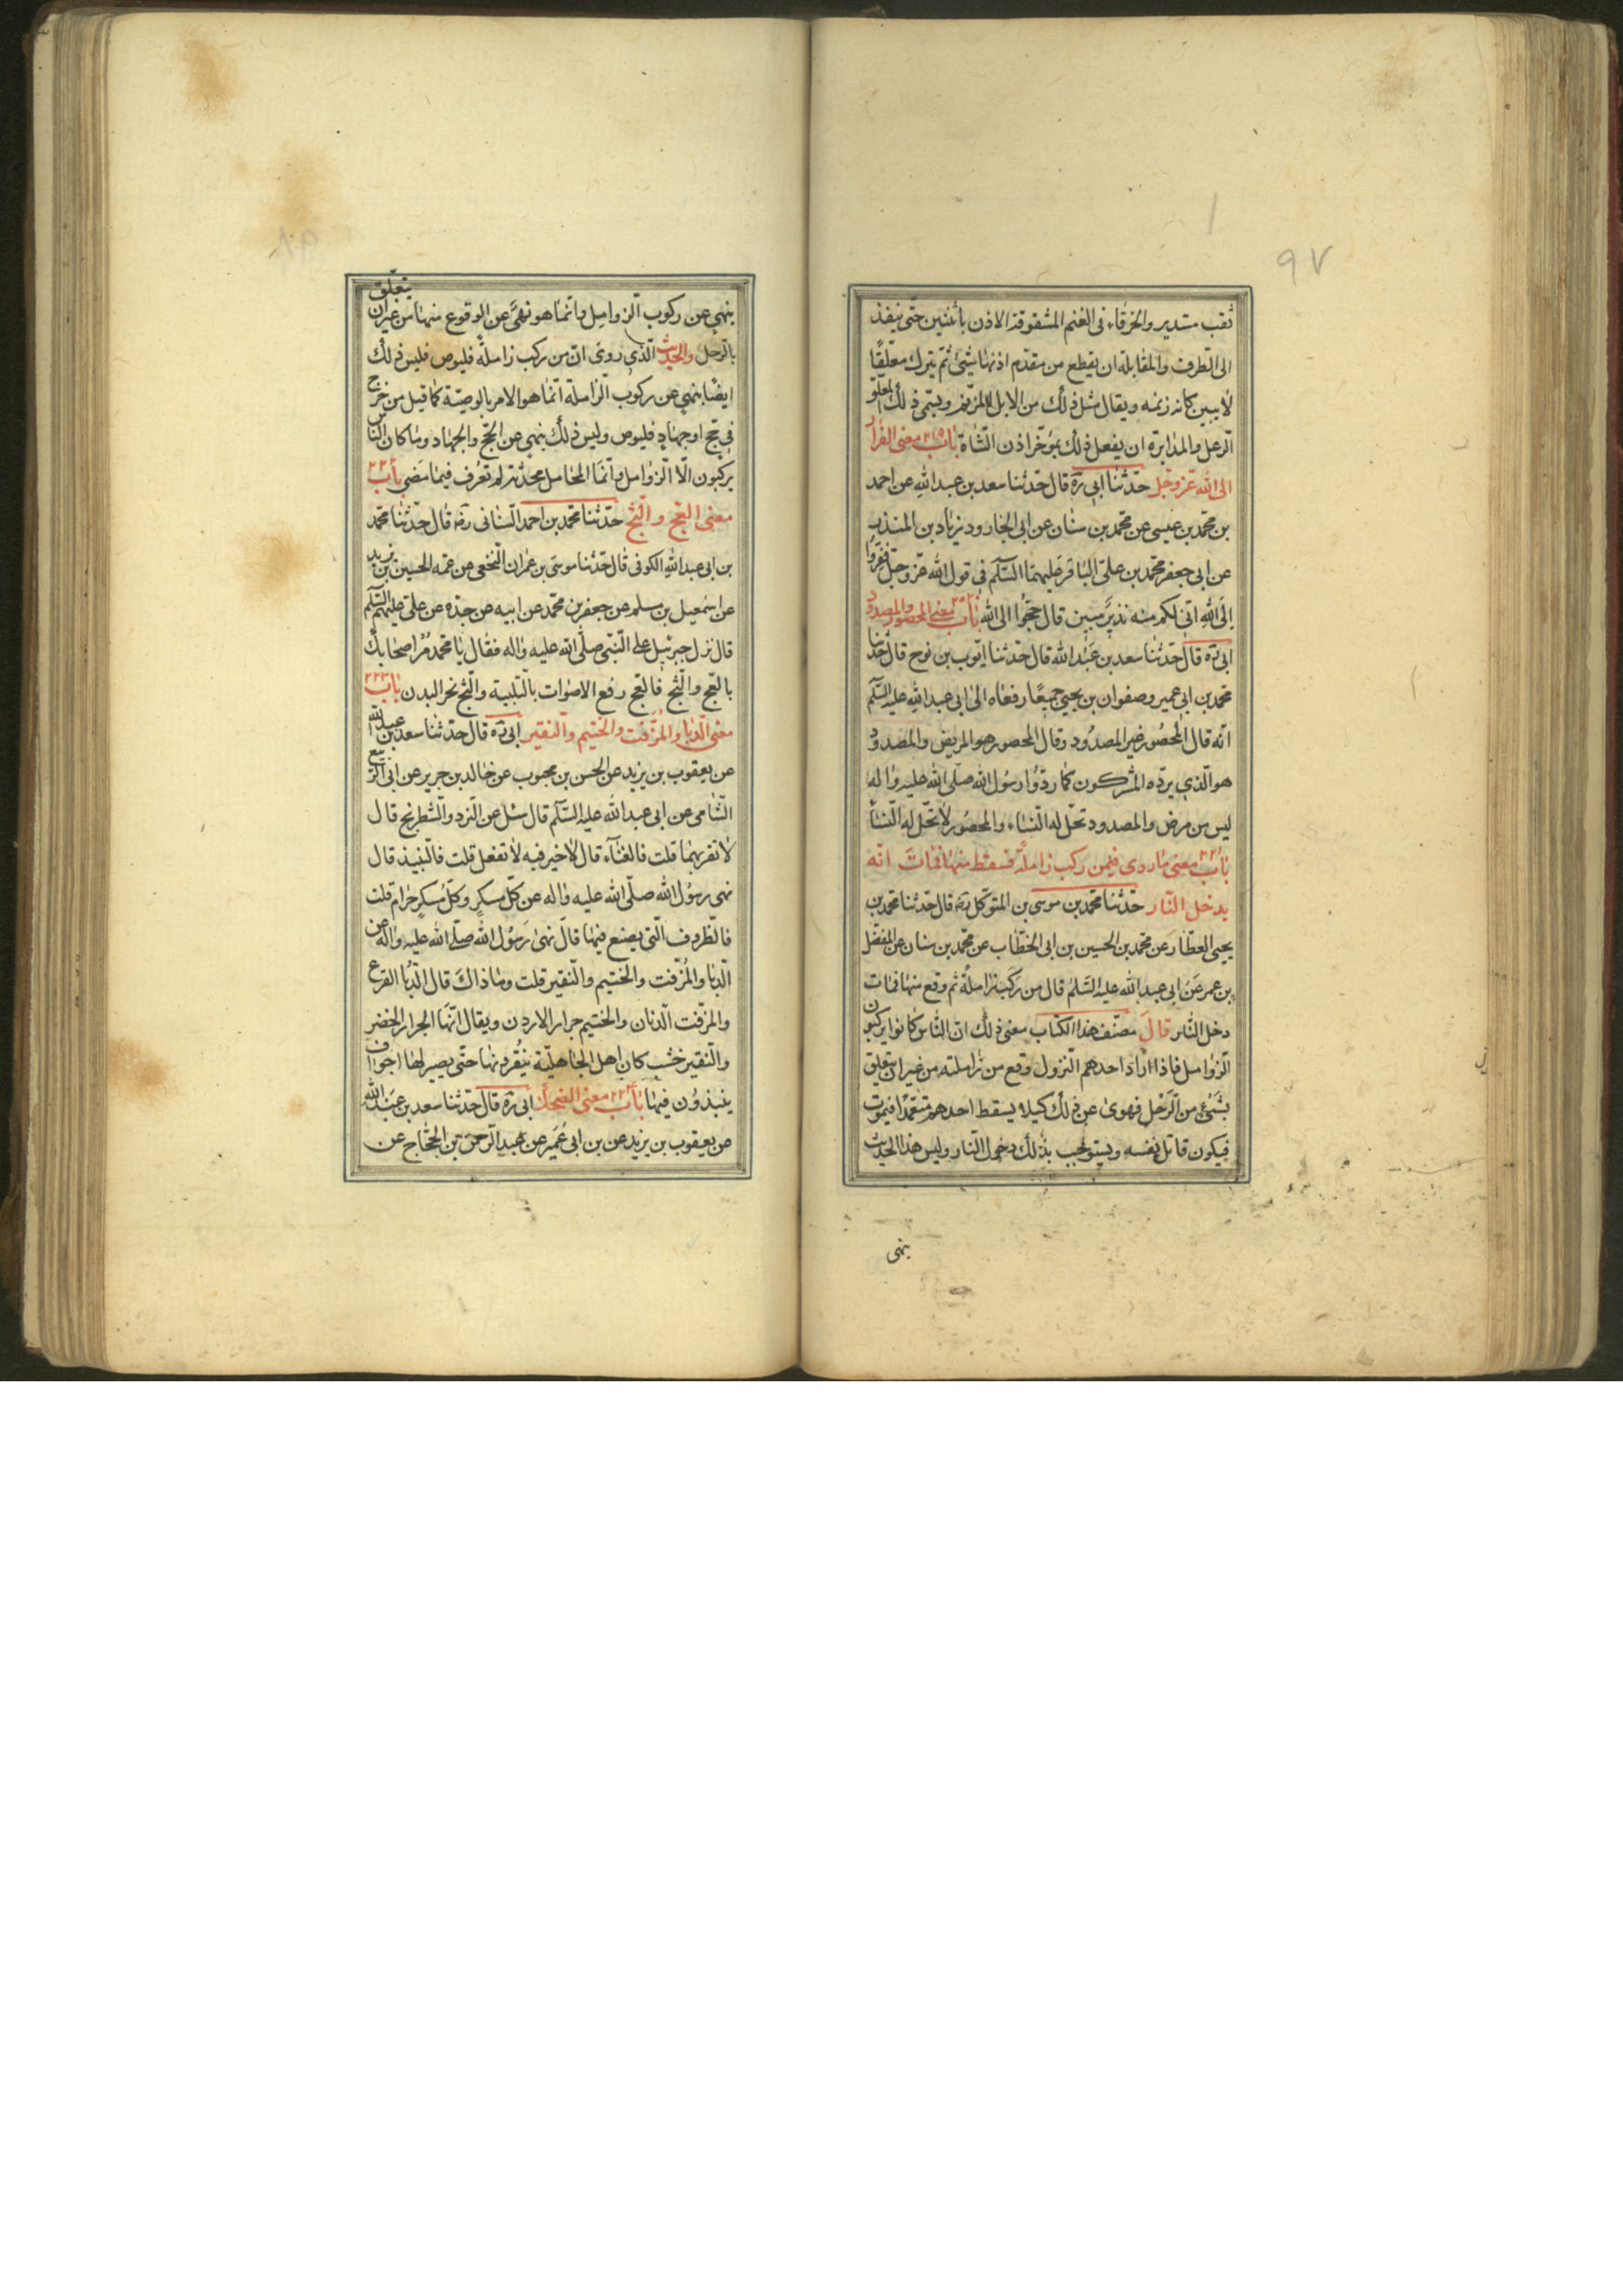 ٩٧
ثقب مستدير والخرقاء فى الغنم المشقوقة الاذن باثنين حتّى ينفذ
الى الطرف والمقابلة ان يقطع من مقدّم اذنها شئ ثمّ يترك معلّقًا
لا يبين كانه زنمه ويقال مثل ذلك من الابل المزنّم ويسمّى ذلك المعلق
الرعل والمدابرة ان يفعل ذلك بمؤخّر اذن الشاة باب ٢١٩ معنى الفرار
الى الله عزّ وجل حدّثنا ابى ره قال حدّثنا سعد بن عبد الله عن احمد
بن محمّد بن عيسى عن محمّد بن سنان عن ابى الجارود زياد بن المنذر
عن ابى جعفر محمّد بن علىّ الباقر عليهما السّلم فى قول الله عزّ وجلّ ففرّوا
الى الله انّى لكم منه نذير مبين قال حجّوا الى الله باب ٢٢٠ معنى المحصور والمصدود
ابى ره قال حدّثنا سعد بن عبد الله قال حدّثنا ايّوب بن نوح قال حدّثنا
محمّد بن ابى عمير وصفوان بن يحيى جميعًا رفعاه الى ابى عبد الله عليه السّلم
انّه قال المحصور غير المصدود وقال المحصور هو المريض والمصدود
هو الّذى يردّه المشركون كما ردّوا رسول الله صلّى الله عليه واله
ليس من مرض والمصدود تحلّ له النّساء والمحصور لا تحلّ له النّساء
باب ٢٢١ معنى ما روى فيمن ركب زاملة فسقط منها فمات انّه
يدخل النّار حدّثنا محمّد بن موسى بن المتوكّل ره قال حدّثنا محمّد بن
يحيى العطّار عن محمّد بن الحسين بن ابى الخطّاب عن محمّد بن سنان عن المفضّل
بن عمر عن ابى عبد الله عليه السّلم قال من ركب زاملة ثم وقع منها فمات
دخل النّار قال مصنّف هذا الكتاب معنى ذلك انّ النّاس كانوا يركبون
الزّوامل فاذا اراد احدهم النزول وقع من زاملته من غير ان يتعلق
بشىء من الرّحل فهوى عن ذلك كيلا يسقط احدهم متعمّدا فيموت
فيكون قاتل نفسه ويستوجب بذلك دخول النّار وليس هذا الحديث
ينهى
ينهى عن ركوب الزوامل وانّما هو نهىٌ عن الوقوع منها من غير ان يتعلّق
بالرّحل والحديث الّذى روى انّ من ركب زاملة فليوص فليس ذلك
ايضًا ينهى عن ركوب الزاملة انّما هو الامر بالوصيّة كما قيل من خرج
فى حجّ او جهاد فليوص وليس ذلك ينهى عن الحجّ والجهاد وما كان النّاس
يركبون الّا الزوامل وانّما المحامل محدثة لم تعرف فيما مضى باب ٢٢٢
معنى العجّ والثجّ حدّثنا محمّد بن احمد السّنانى ره قال حدّثنا محمّد
بن ابى عبد الله الكوفى قال حدّثنا موسى بن عمران النّخعى عن عمّه الحسين بن يزيد
عن اسمعيل بن مسلم عن جعفر بن محمّد عن ابيه عن جدّه عن علىّ عليهم السّلم
قال نزل جبرئيل على النّبىّ صلّى الله عليه واله فقال يا محمّد مُر اصحابك
بالعجّ والثّجّ فالعجّ رفع الاصوات بالتّلبية والثّجّ نحر البدن باب ٢٢٣
معنى الدّبا والمزفّت والختيم والنقير ابى ره قال حدّثنا سعد بن عبد الله
عن يعقوب بن يزيد عن الحسن بن محبوب عن خالد بن جرير عن ابى الرّبيع
الشّامى عن ابى عبد الله عليه السّلم قال سئل عن النّرد والشّطرنج قال
لا تقربهما قلت فالغناء قال لا خير فيه لا تفعل قلت فالنّبيذ قال
نهى رسول الله صلّى الله عليه واله عن كلّ مسكرٍ وكلّ مسكرٍ حرام قلت
فالظّروف الّتى يصنع فيها قال نهى رسول الله صلّى الله عليه واله عن
الدّبا والمزفّت والختيم والنقير قلت وما ذاك قال الدّبا القرع
والمزفّت الدّنان والختيم جرار الاردن ويقال انّها الجرار الخضر
والنّقير خشب كان اهل الجاهليّة ينقرونها حتّى يصير لها اجواف
ينبذون فيها باب ٢٢٤ معنى الضحك ابى ره قال حدّثنا سعد بن عبد الله
عن يعقوب بن يزيد عن بن ابى عمير عن عبد الرّحمن بن الحجّاج عن